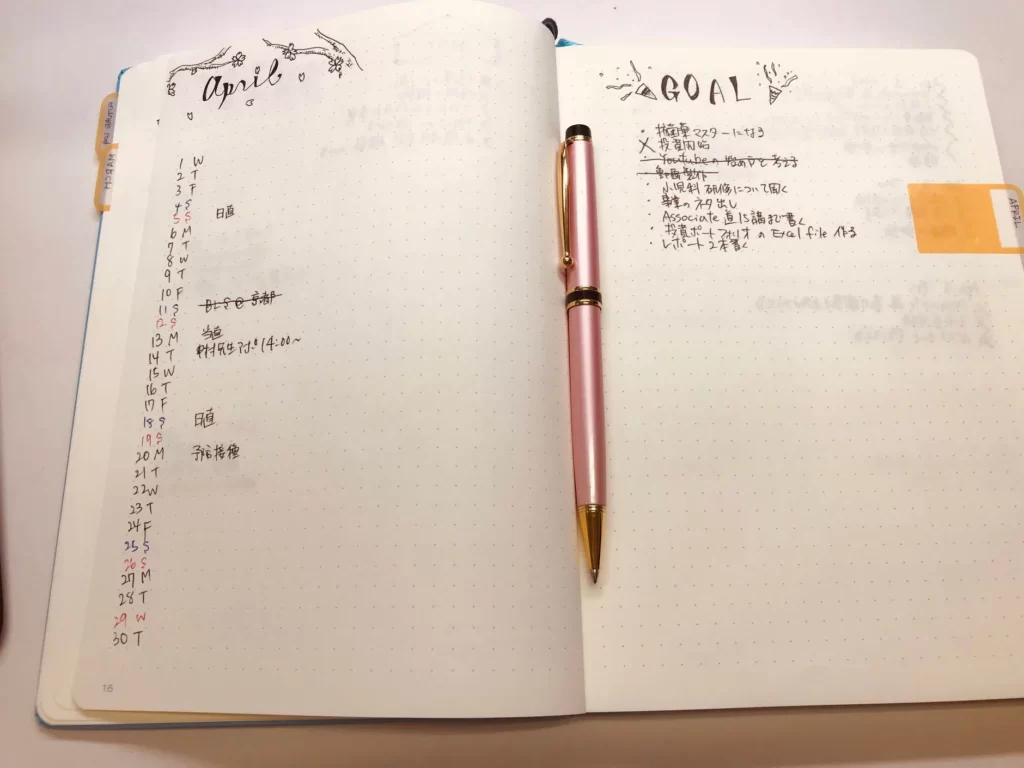 April
1 W
2 T
3 F
4 S
5 S 日直
6 M
7 T
8 W
9 T
10 F
11 S BLS@京都
12 S
13 M 当直
14 T 先生アポ 14:00~
15 W
16 T
17 F
18 S 日直
19 S
20 M 予防接種
21 T
22 W
23 T
24 F
25 S
26 S
27 M
28 T
29 W
30 T
16
MARCH
GOAL
・ マスターになる
X 投資開始
・ Youtubeの始め方を考える
・ 動画製作
・ 小児科研修について聞く
・ のネタ出し
・ Associate 直15講まで書く
・ 投資ポートフォリオのExcel file 作る
・ レポート2本書く
APRIL